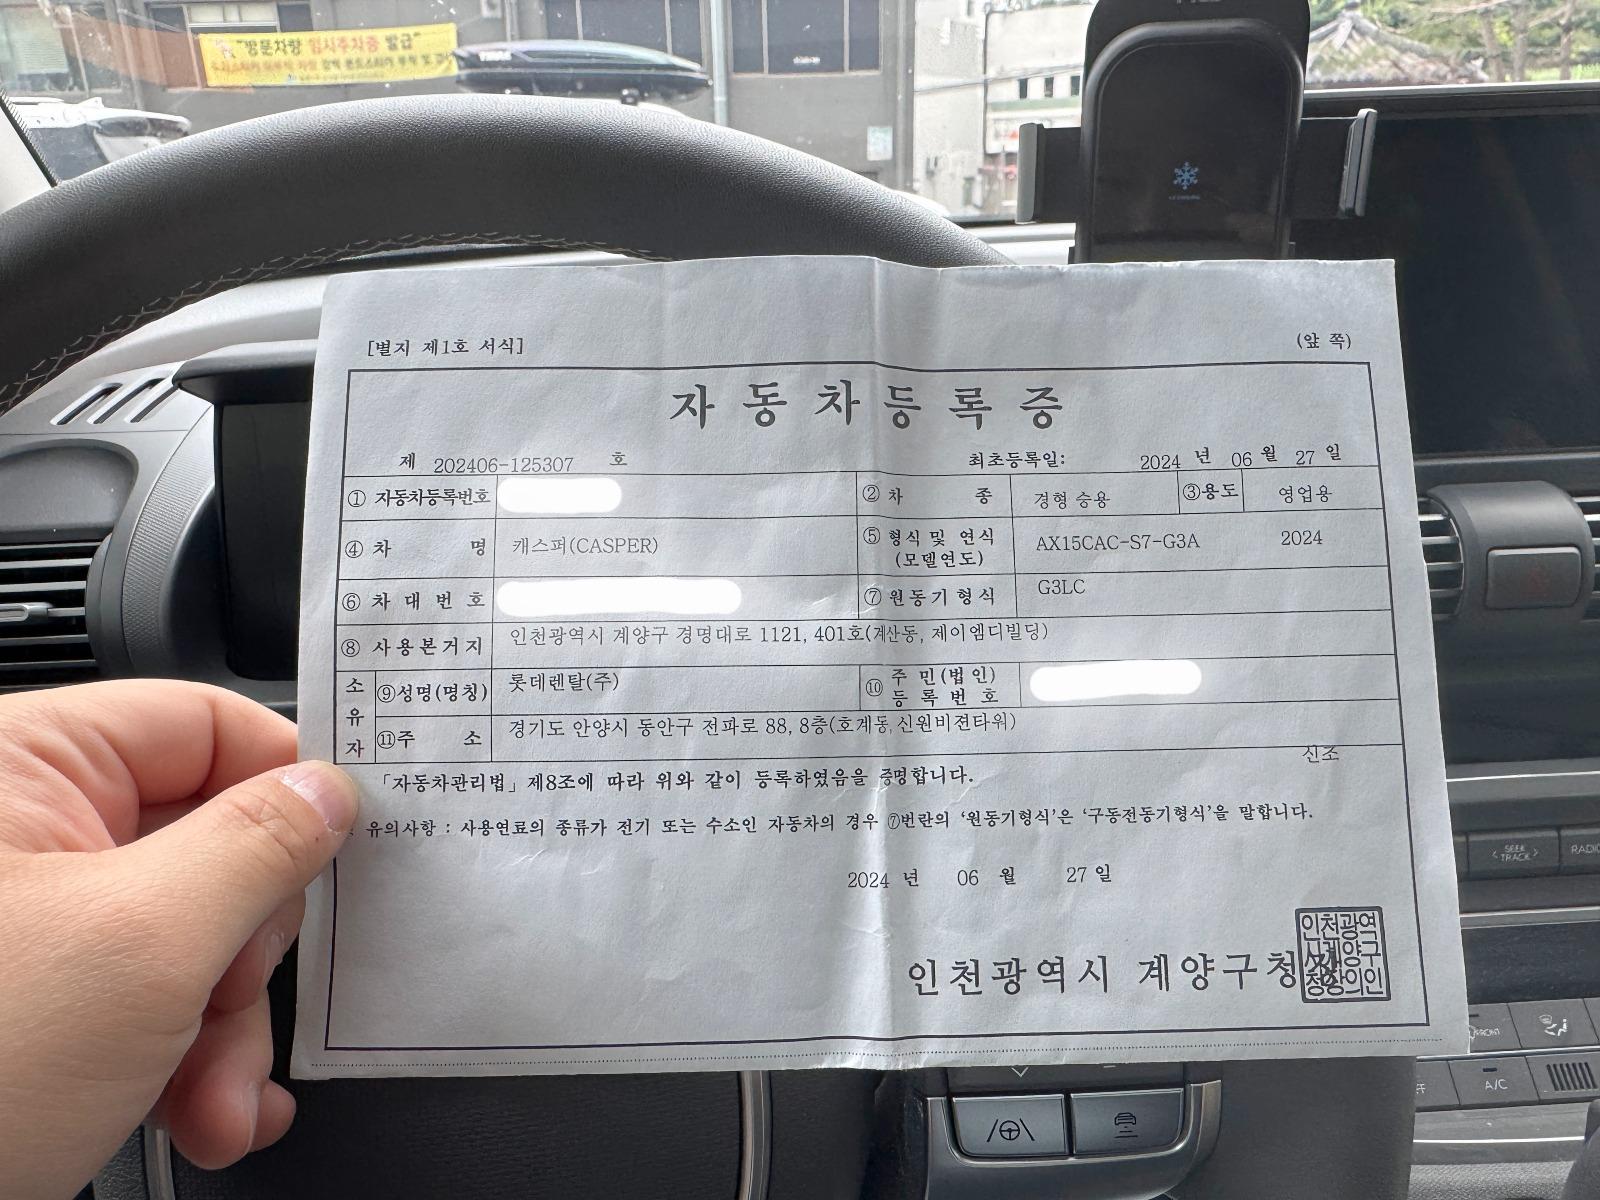 "방문차량 임시주차증 발급"
THULE
[별지 제1호 서식]
(앞 쪽)
자동차등록증
제 202406-125307 호
최초등록일: 2024 년 06 월 27 일
① 자동차등록번호
② 차 종 경형 승용 ③용도 영업용
④ 차 명 캐스퍼(CASPER)
⑤ 형식 및 연식 (모델연도) AX15CAC-S7-G3A 2024
⑥ 차 대 번 호
⑦ 원동기형식 G3LC
⑧ 사용본거지 인천광역시 계양구 경명대로 1121, 401호(계산동, 제이엠디빌딩)
소유자
⑨성명(명칭) 롯데렌탈(주)
⑩ 주 민(법인) 등 록 번 호
⑪주 소 경기도 안양시 동안구 전파로 88, 8층(호계동, 신원비젼타워)
신조
「자동차관리법」 제8조에 따라 위와 같이 등록하였음을 증명합니다.
유의사항 : 사용연료의 종류가 전기 또는 수소인 자동차의 경우 ⑦번란의 '원동기형식'은 '구동전동기형식'을 말합니다.
2024 년 06 월 27 일
인천광역시 계양구청장
인천광역
시계양구
청장의인
SEEK
TRACK
RADIO
FRONT
A/C